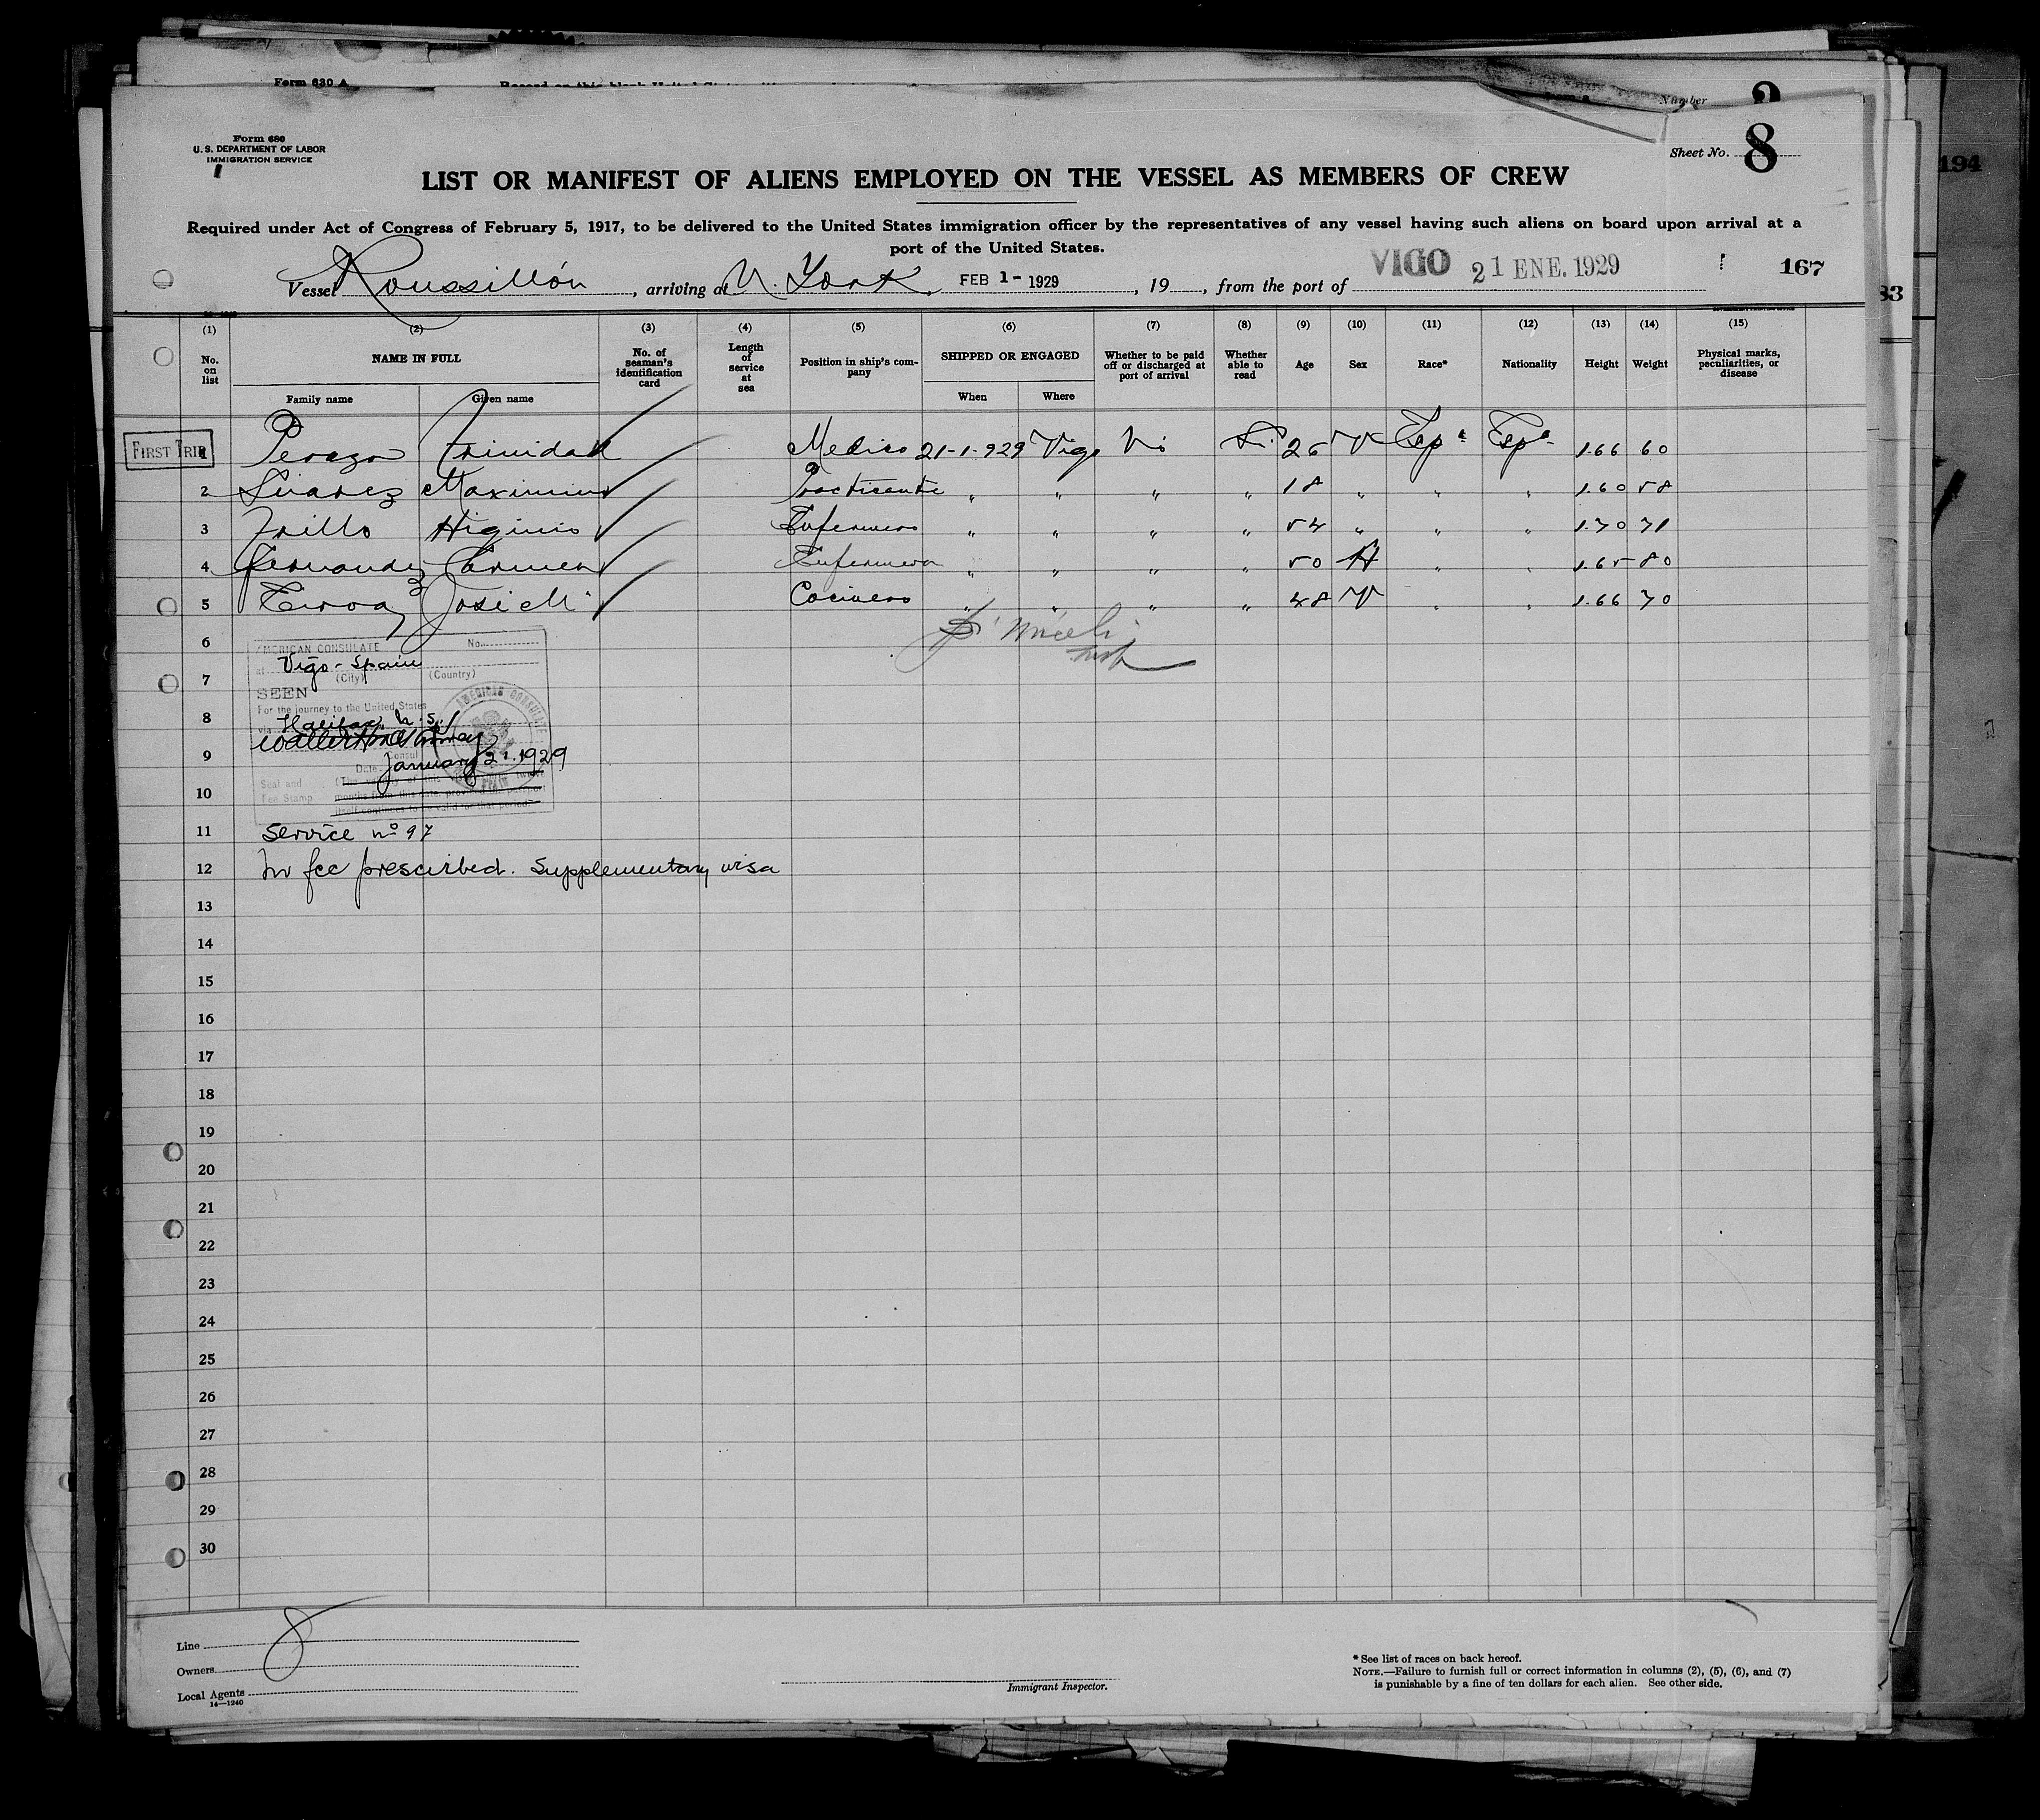 Form 630 A
Number
194
Form 680
U. S. DEPARTMENT OF LABOR
IMMIGRATION SERVICE
Sheet No. 8
LIST OR MANIFEST OF ALIENS EMPLOYED ON THE VESSEL AS MEMBERS OF CREW
Required under Act of Congress of February 5, 1917, to be delivered to the United States immigration officer by the representatives of any vessel having such aliens on board upon arrival at a
port of the United States.
Vessel Roussillón, arriving at N. York, FEB 1 - 1929, 19, from the port of VIGO 21 ENE. 1929 167
83
(1) (2) (3) (4) (5) (6) (7) (8) (9) (10) (11) (12) (13) (14) (15)
No. on list NAME IN FULL No. of seaman's identification card Length of service at sea Position in ship's company SHIPPED OR ENGAGED Whether to be paid off or discharged at port of arrival Whether able to read Age Sex Race* Nationality Height Weight Physical marks, peculiarities, or disease
Family name Given name When Where
FIRST TRIP Trinidad Medico 21-1-929 Vigo No Si 26 V Espª Espª 1.66 60
2 Suarez Maximino Practicante " " " " 18 " " " 1.60 58
3 Trillo Higinio Enfermero " " " " 54 " " " 1.70 71
4 Fernandez Carmen Enfermera " " " " 50 H " " 1.65 80
5 José M. Cocinero " " " " 48 V " " 1.66 70
6
AMERICAN CONSULATE No.
at Vigo - Spain
7
(City) (Country)
SEEN
For the journey to the United States
8
via Halifax, N.S.
9
Consul
Date January 21. 1929
AMERICAN CONSULATE
Seal and
10
Fee Stamp months from this date, provided the passport
itself continues to be valid for that period.
11 Service nº 97
12 No fee prescribed. Supplementary visa
13
14
15
16
17
18
19
20
21
22
23
24
25
26
27
28
29
30
8
Line
Owners
Local Agents
14—1240
Immigrant Inspector.
* See list of races on back hereof.
NOTE.—Failure to furnish full or correct information in columns (2), (5), (6), and (7)
is punishable by a fine of ten dollars for each alien. See other side.